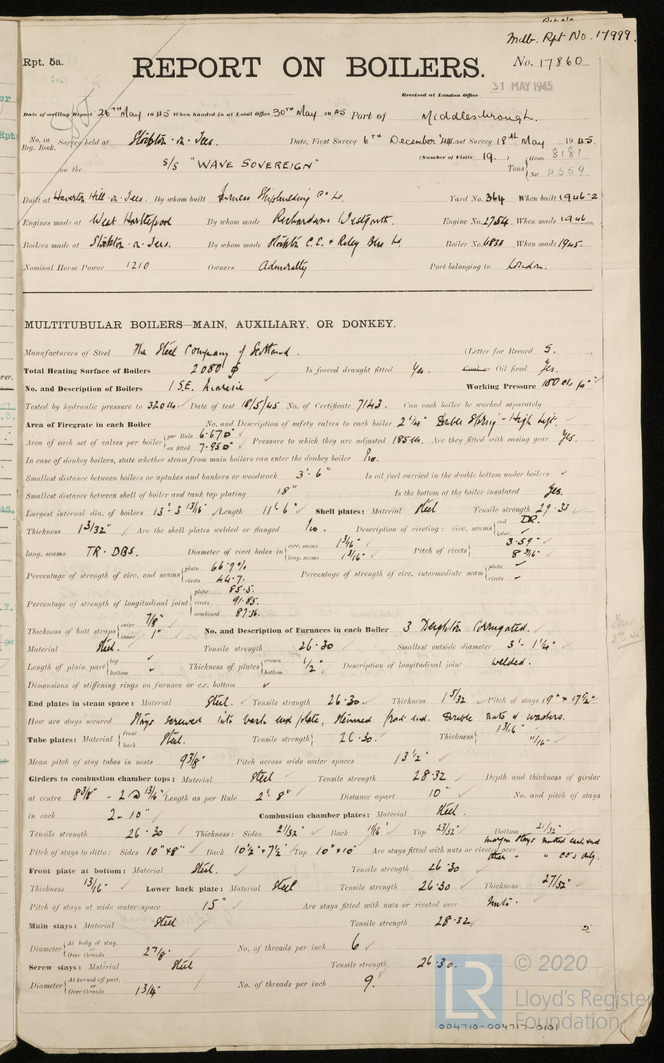 Mdb. Rpt No. 17999.
Rpt. 5a.
REPORT ON BOILERS.
No. 17860
Received at London Office 31 MAY 1945
Date of writing Report 26TH May 1945 When handed in at Local Office 30TH May 1945 Port of Middlesbrough.
No. in Reg. Book. Survey held at Stockton-on-Tees. Date, First Survey 6TH December '44 Last Survey 18th May 1945.
on the S/S "WAVE SOVEREIGN" (Number of Visits 19.) Tons Gross 8181
Net 4559
Built at Haverton Hill-on-Tees. By whom built Furness Shipbuilding Co Ld. Yard No. 364 When built 1946-2
Engines made at West Hartlepool By whom made Richardsons Westgarth. Engine No. 2754 When made 1946
Boilers made at Stockton-on-Tees. By whom made Stockton C.E. & Riley Blrs Ld Boiler No. 6835 When made 1945.
Nominal Horse Power 1210 Owners Admiralty Port belonging to London.
MULTITUBULAR BOILERS—MAIN, AUXILIARY, OR DONKEY.
Manufacturers of Steel The Steel Company of Scotland. (Letter for Record S.
Total Heating Surface of Boilers 2080 Is forced draught fitted Coal or Oil fired Yes.
No. and Description of Boilers 1 S.E. Marine Working Pressure 180
Tested by hydraulic pressure to 320 lb. Date of test 18/5/45 No. of Certificate 7143. Can each boiler be worked separately
Area of Firegrate in each Boiler No. and Description of safety valves to each boiler 2 1/4" Double Spring - High Lift.
Area of each set of valves per boiler per Rule 6.67□" as fitted 7.95□" Pressure to which they are adjusted 185 lb. Are they fitted with easing gear Yes.
In case of donkey boilers, state whether steam from main boilers can enter the donkey boiler No.
Smallest distance between boilers or uptakes and bunkers or woodwork 3'-6" Is oil fuel carried in the double bottom under boilers ✓
Smallest distance between shell of boiler and tank top plating 18" Is the bottom of the boiler insulated Yes.
Largest internal dia. of boilers 13'-3 13/16" Length 11'-6" Shell plates: Material Steel Tensile strength 29.33
Thickness 1 3/32" Are the shell plates welded or flanged No. Description of riveting: circ. seams end DR. inter. ✓
long. seams TR. DBS. Diameter of rivet holes in circ. seams 1 3/16" long. seams 1 3/16" Pitch of rivets 3.59" 8 3/16"
Percentage of strength of circ. end seams plate 66.9% rivets 44.7. Percentage of strength of circ. intermediate seam plate ✓ rivets ✓
Percentage of strength of longitudinal joint plate 85.5. rivets 91.85. combined
Thickness of butt straps outer 7/8" inner 1" No. and Description of Furnaces in each Boiler 3 Deighton Corrugated.
Material Steel. Tensile strength 26.30 Smallest outside diameter 3'-1 1/4"
Length of plain part top ✓ bottom ✓ Thickness of plates crown bottom 1/2" Description of longitudinal joint welded.
Dimensions of stiffening rings on furnace or c.c. bottom ✓
End plates in steam space: Material Steel. Tensile strength 26.30 Thickness 1 5/32 Pitch of stays 19" × 17 1/2"
How are stays secured Stays screwed into back end plate, front end. Double nuts & washers.
Tube plates: Material front back Steel. Tensile strength 26.30. Thickness 13/16" 11/16"
Mean pitch of stay tubes in nests 9 3/8" Pitch across wide water spaces 13 1/2"
Girders to combustion chamber tops: Material Steel Tensile strength 28.32 Depth and thickness of girder
at centre 8 3/8" - 2 @ 13/16" Length as per Rule 2'-8" Distance apart 10" No. and pitch of stays
in each 2-10" Combustion chamber plates: Material Steel.
Tensile strength 26.30 Thickness: Sides 21/32" Back 11/16" Top 23/32" Bottom 21/32"
Pitch of stays to ditto: Sides 10"×8" Back 10 1/2"×7 1/2" Top 10"×10" Are stays fitted with nuts or riveted over margin stays nutted each end
other " " CC's only.
Front plate at bottom: Material Steel. Tensile strength 26.30
Thickness 13/16" Lower back plate: Material Steel Tensile strength 26.30 Thickness 27/32"
Pitch of stays at wide water space 15" Are stays fitted with nuts or riveted over Nuts.
Main stays: Material Steel Tensile strength 28.32.
Diameter At body of stay, or Over threads 2 7/8" No. of threads per inch 6
Screw stays: Material Steel Tensile strength 26.30.
Diameter At turned off part, or Over threads 1 3/4" No. of threads per inch 9.
LR
© 2020
Lloyd's Register
Foundation
004710-004717-0101